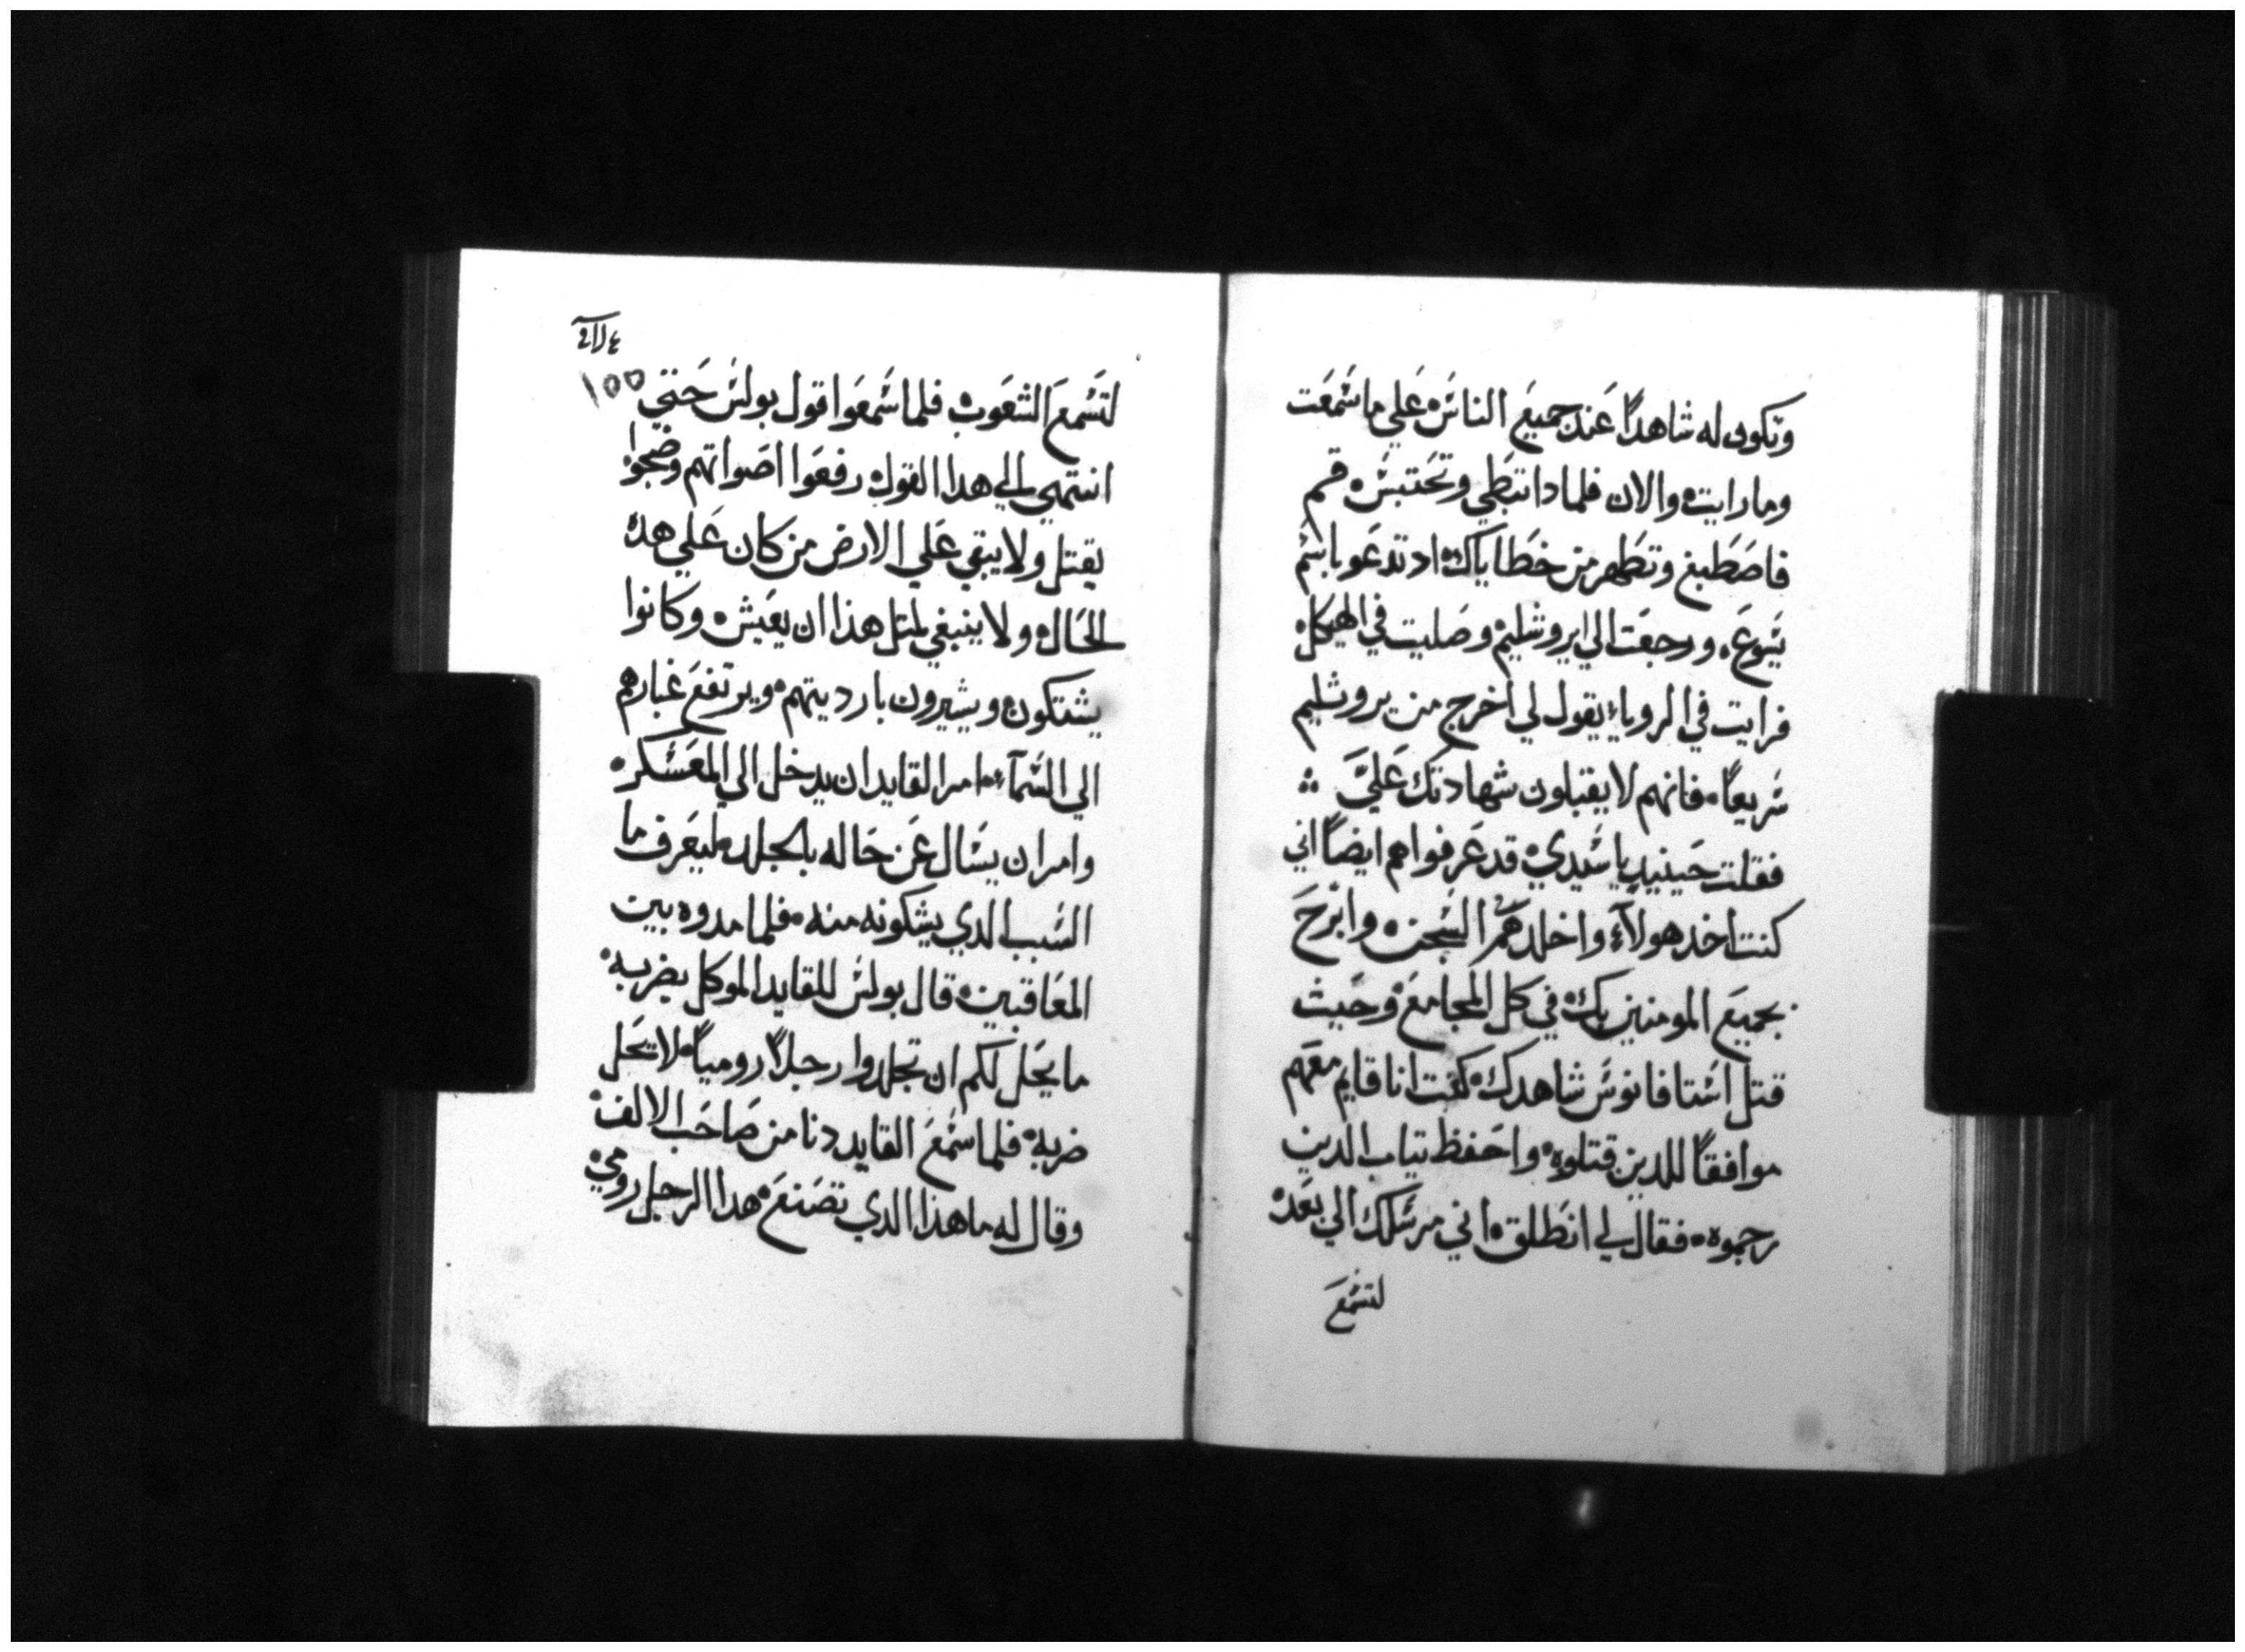 وتكون له شاهدًا عند جميع الناس علي ما سمعت
وما رايت والان فلمادا تبطي وتحتبس قم
فاصطبغ وتطهر من خطاياك اد تدعو باسم
يسوع ورجعت الي ايروشليم وصليت في الهيكل
فرايت في الروياء يقول لي اخرج من يروشليم
سريعًا فانهم لا يقبلون شهادتك عليَّ
فقلت حينيد يا سيدي قد عرفوا هم ايضًا اني
كنت اخد هولآء واخلدهم السجن وابرح
بجميع المومنين بك في كل المجامع وحيث
قتل استافانوس شاهدك كنت انا قايم معهم
موافقًا للدين قتلوه واحفظ تياب الدين
رجموه فقال لي انطلق اني مرسلك الي بعد
لتسمع
١٥٥
لتسمع الشعوب فلما سمعوا قول بولس حتي
انتهي الي هدا القول رفعوا اصواتهم وضجوا
يقتل ولا يبقي علي الارض من كان علي هده
الحال ولا ينبغي لمتل هذا ان يعيش وكانوا
يشتكون ويشيرون بارديتهم ويرتفع غبارهم
الي السمآء امر القايد ان يدخل الي المعسكر
وامر ان يسال عن حاله بالجلد ليعرف ما
السبب الدي يشكونه منه فلما مدوه بين
المعاقبين قال بولس للقايد الموكل بضربه
ما يحل لكم ان تجلدوا رجلاً روميًا لا يحل
ضربه فلما سمع القايد دنا من صاحب الالف
وقال له ما هذا الدي تصنع هدا الرجل رومي